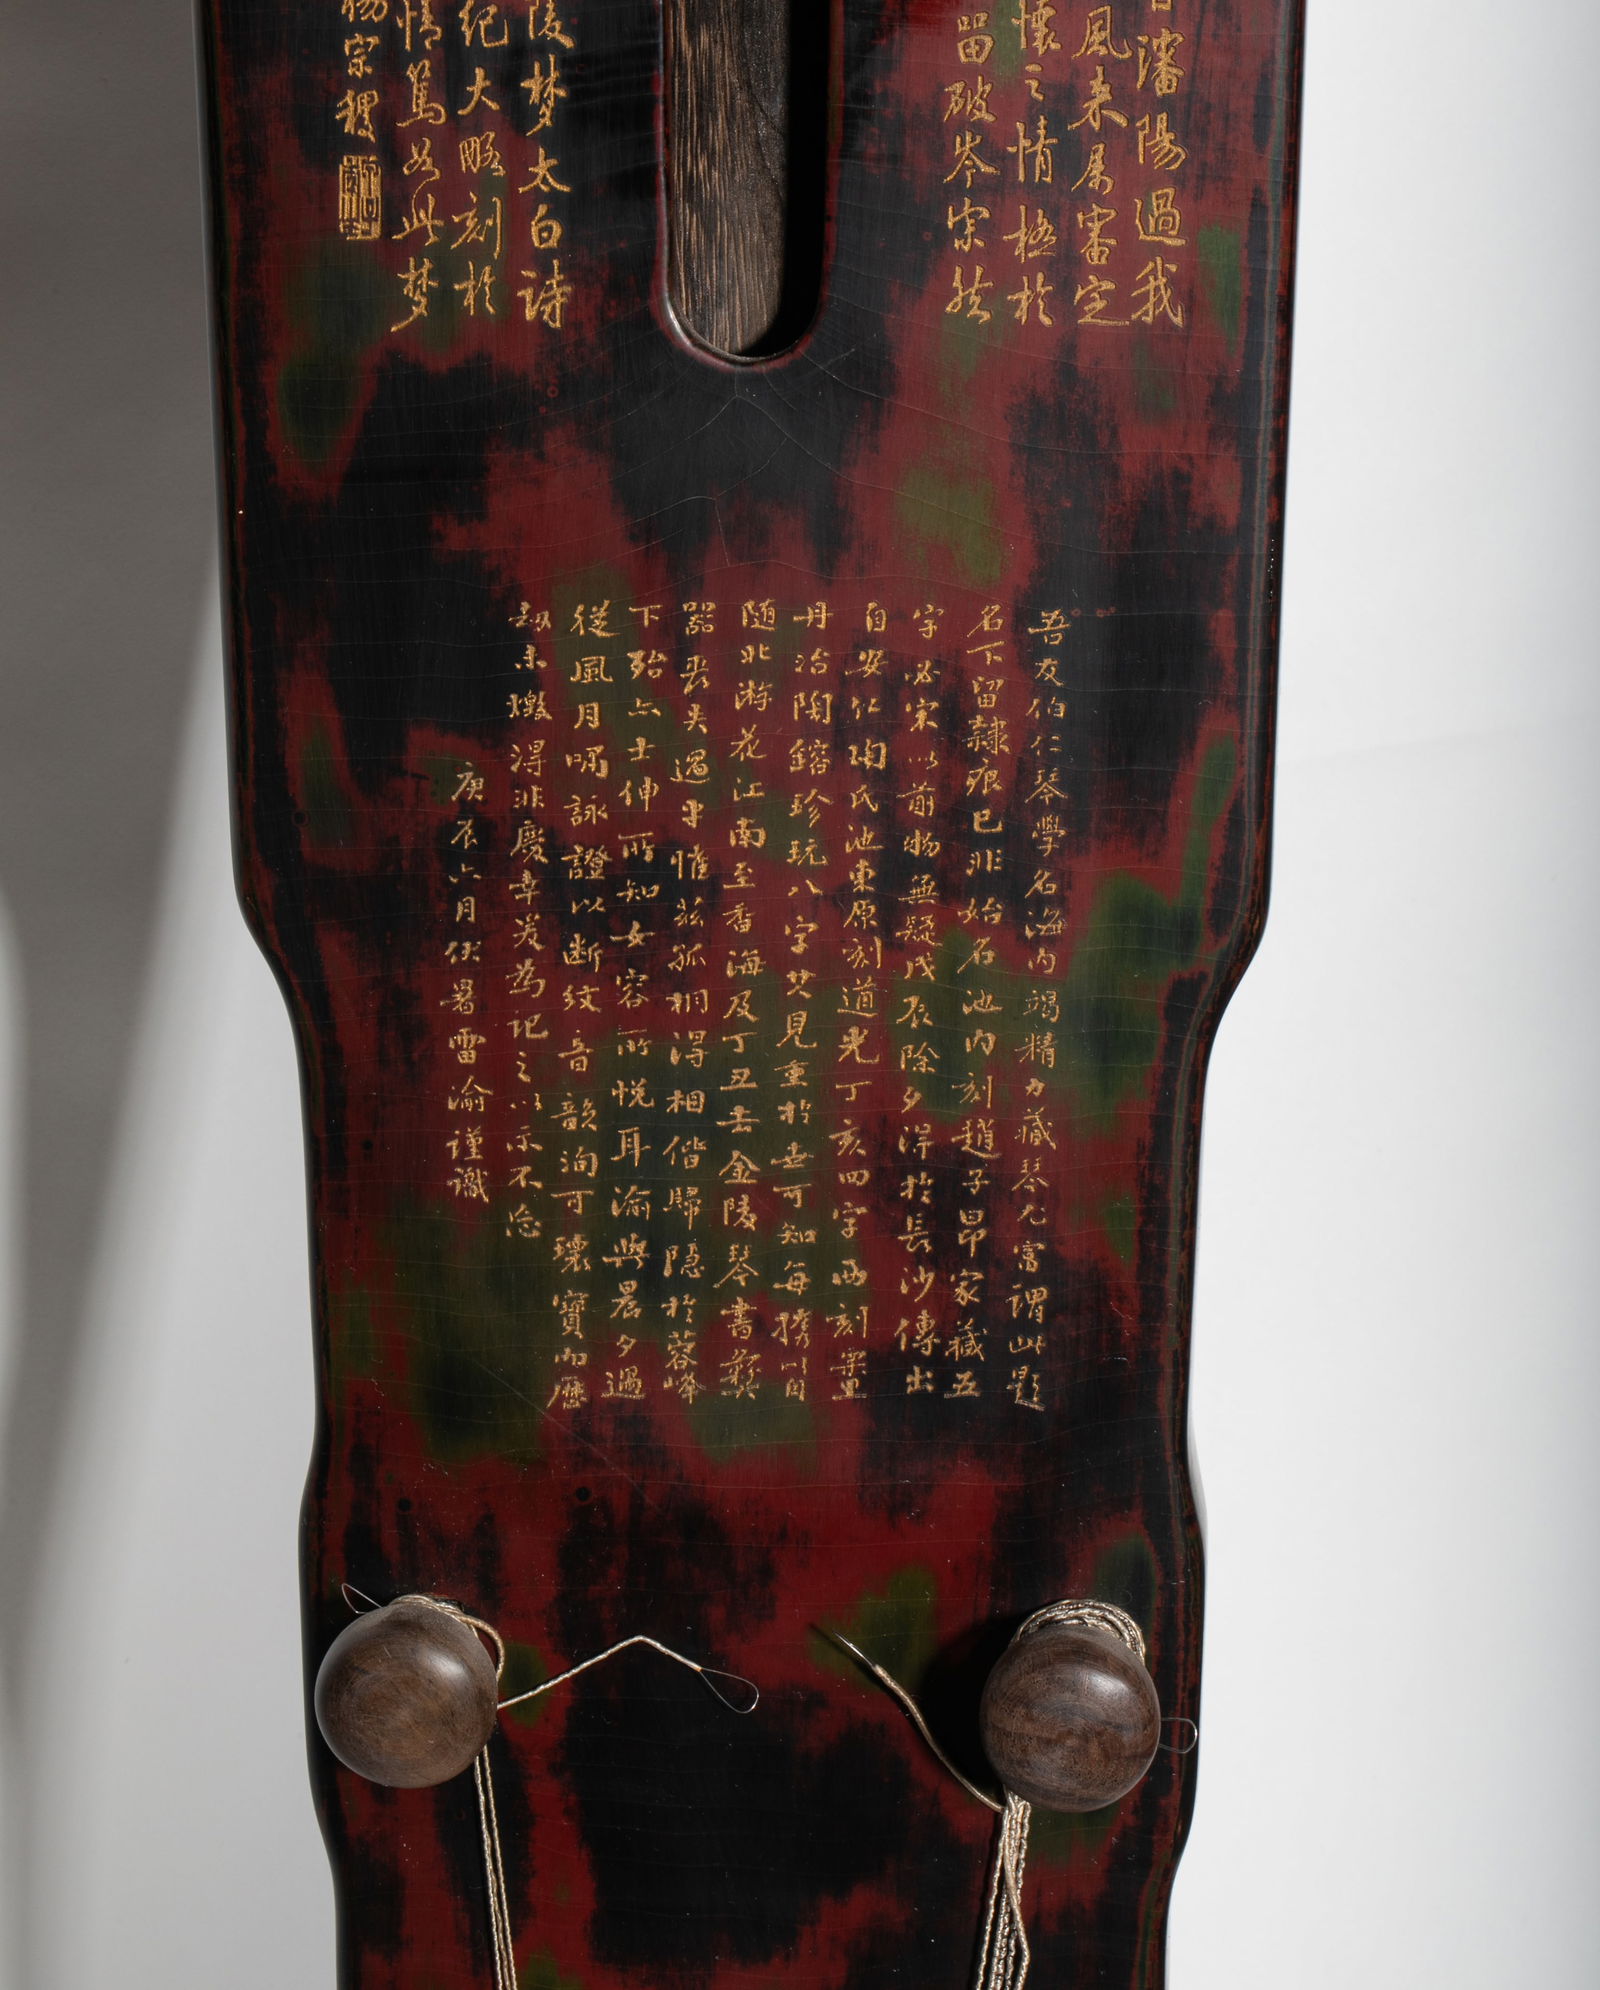 瀋陽過我
風来属審定
懷之情極於
留破岑宗於
陵梦太白詩
纪大略刻於
情篤如此梦
楊宗稷
吾友伯仁琴學名海内竭精力藏琴尤富謂此題
名下留隷痕已非始名池内刻趙子昂家藏五
字必宋以前物無疑戊辰除夕得於長沙傳出
自安仁陶氏池東原刻道光丁亥四字兩刻
丹冶陶鎔珍玩八字其見重於世可知每携以自
随北游花江南至香海及丁丑去金陵琴書
器喪失過半惟茲孤桐得相偕歸隱於蓉峰
下殆亦士伸所知女容所悦耳渝與晨夕過
從風月嘯詠證以断纹音韻洵可瓌寶而歷
劫未燬得非慶幸爰為記之以示不忘
庚辰六月伏暑雷渝谨識